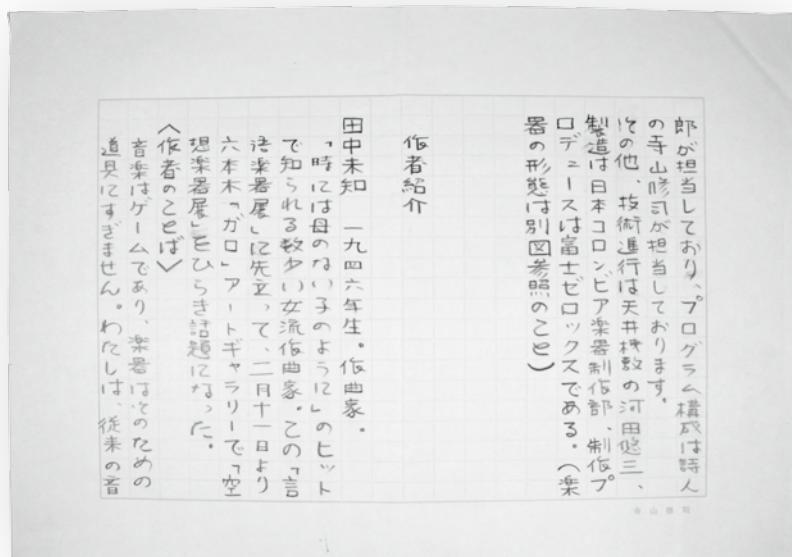 郎が担当しており、プログラム構成は詩人
の寺山修司が担当しております。
その他、技術進行は天井桟敷の河田悠三、
製造は日本コロンビア楽器制作部、制作プ
ロデュースは富士ゼロックスである。（楽
器の形態は別図参照のこと）
作者紹介
田中未知　一九四六年生。作曲家。
「時には母のない子のように」のヒット
で知られる数少い女流作曲家。この「言
語楽器展」に先立って、二月十一日より
六本木「ガロ」アートギャラリーで「空
想楽器展」をひらき話題になった。
〈作者のことば〉
音楽はゲームであり、楽器はそのための
道具にすぎません。わたしは、従来の音
寺山修司